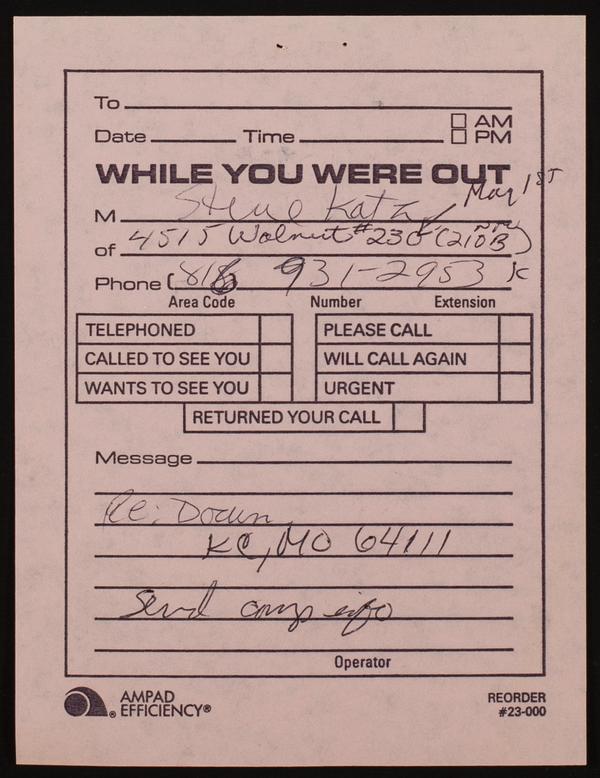 To
AM
Date Time PM
WHILE YOU WERE OUT
May 1st
M Steve Katz
of 4515 Walnut #230 (210B)
Phone (816 931-2953 KC
Area Code Number Extension
TELEPHONED PLEASE CALL
CALLED TO SEE YOU WILL CALL AGAIN
WANTS TO SEE YOU URGENT
RETURNED YOUR CALL
Message
Re:
KC, MO 64111
Send info
Operator
AMPAD
EFFICIENCY®
REORDER
#23-000